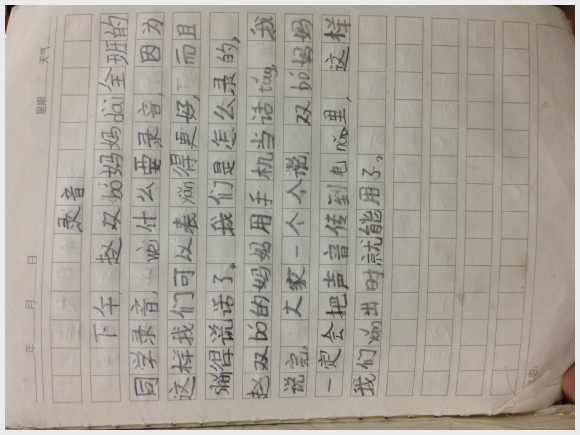 年 月 日 星期 天气
录音
下午,赵双bó妈妈dài全班的
同学录音,wèi什么要录音,因为
这样我们可以表yǎn得更好,而且
懒得说话了。我们是怎么录的,
赵双bó的妈妈用手机当话tǒng,我
说完,大家一个个说,双bó妈妈
一定会把声音传到电nǎo里,这样
我们yǎn出时就能用了。